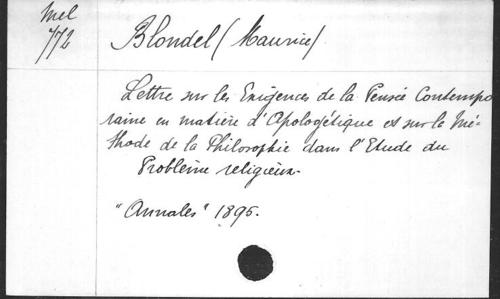 Mel
772
Blondel (Maurice)
Lettre sur les Exigences de la Pensée Contempo
raine en matière d'Apologétique et sur la Mé-
thode de la Philosophie dans l'Etude du
Problème religieux.
"Annales" 1895.